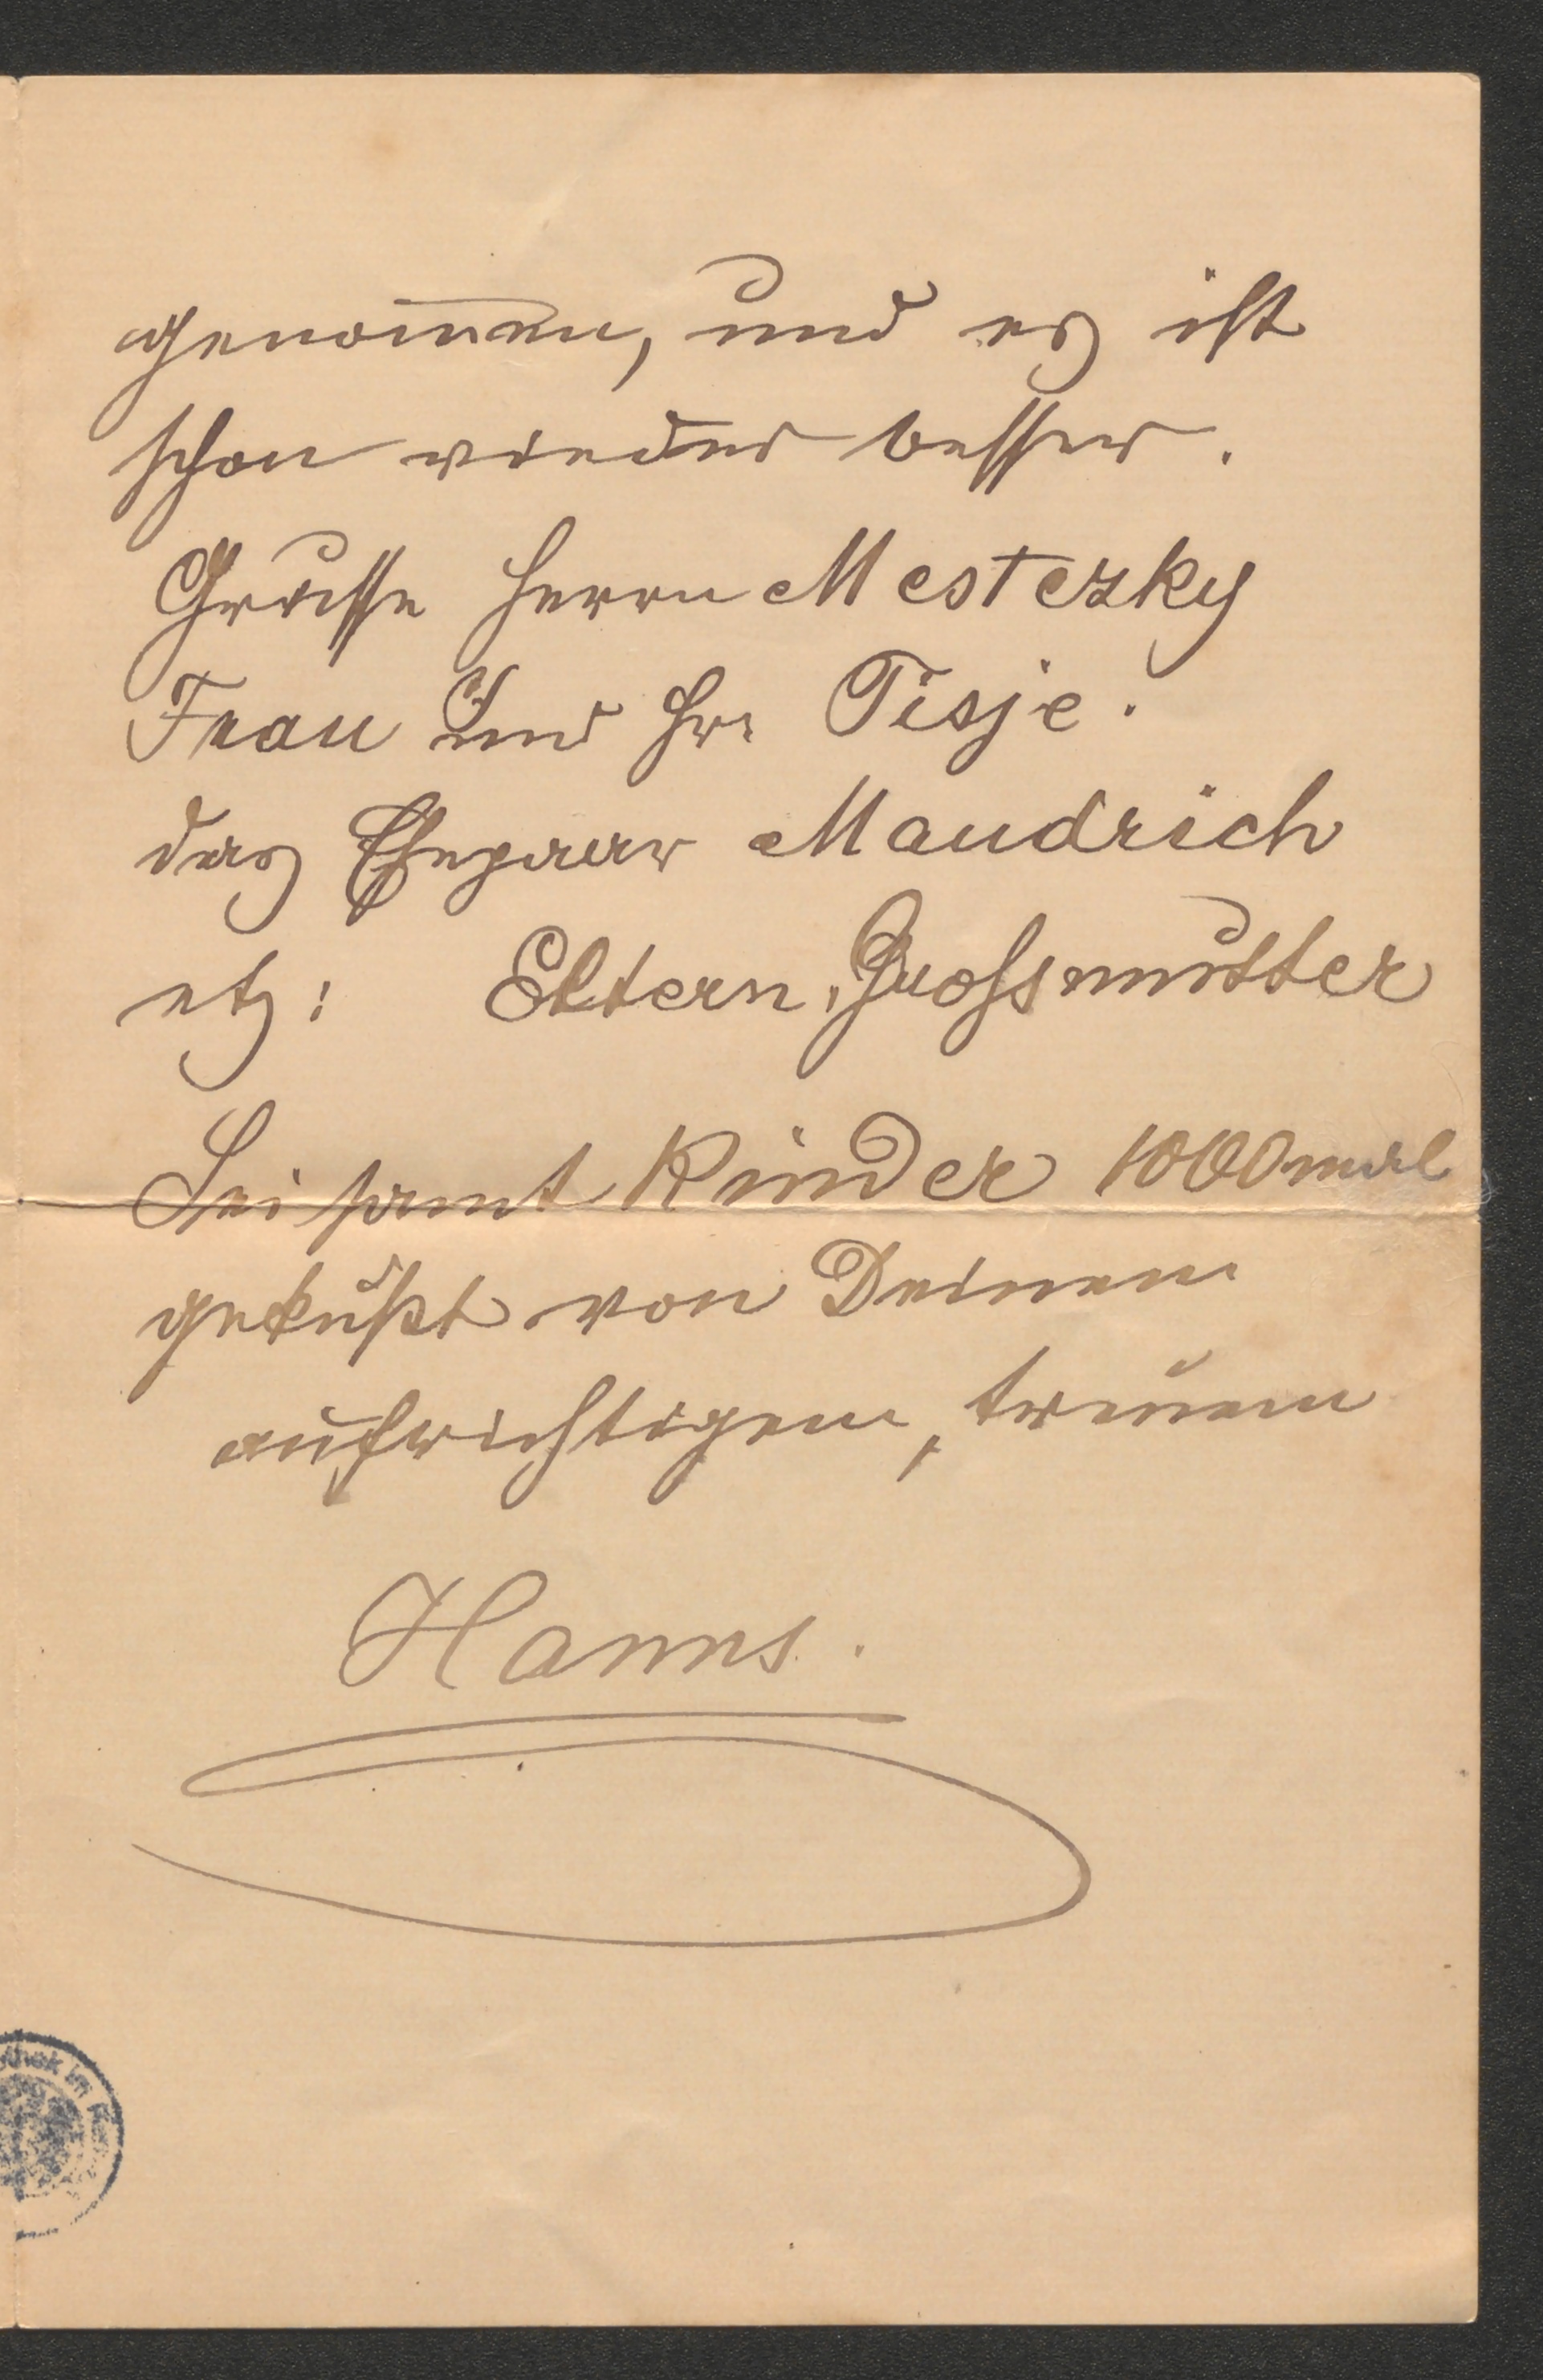 genom̅en, und es ist
schon wieder besser.
Grüsse Herrn Mestezky
Frau und Hr. Tisje.
das Ehepaar Mandrich
etz: Eltern, Grossmutter
Sei samt Kinder 1000mal
geküßt von Deinem
aufrichtigem, treuem
Hanns.